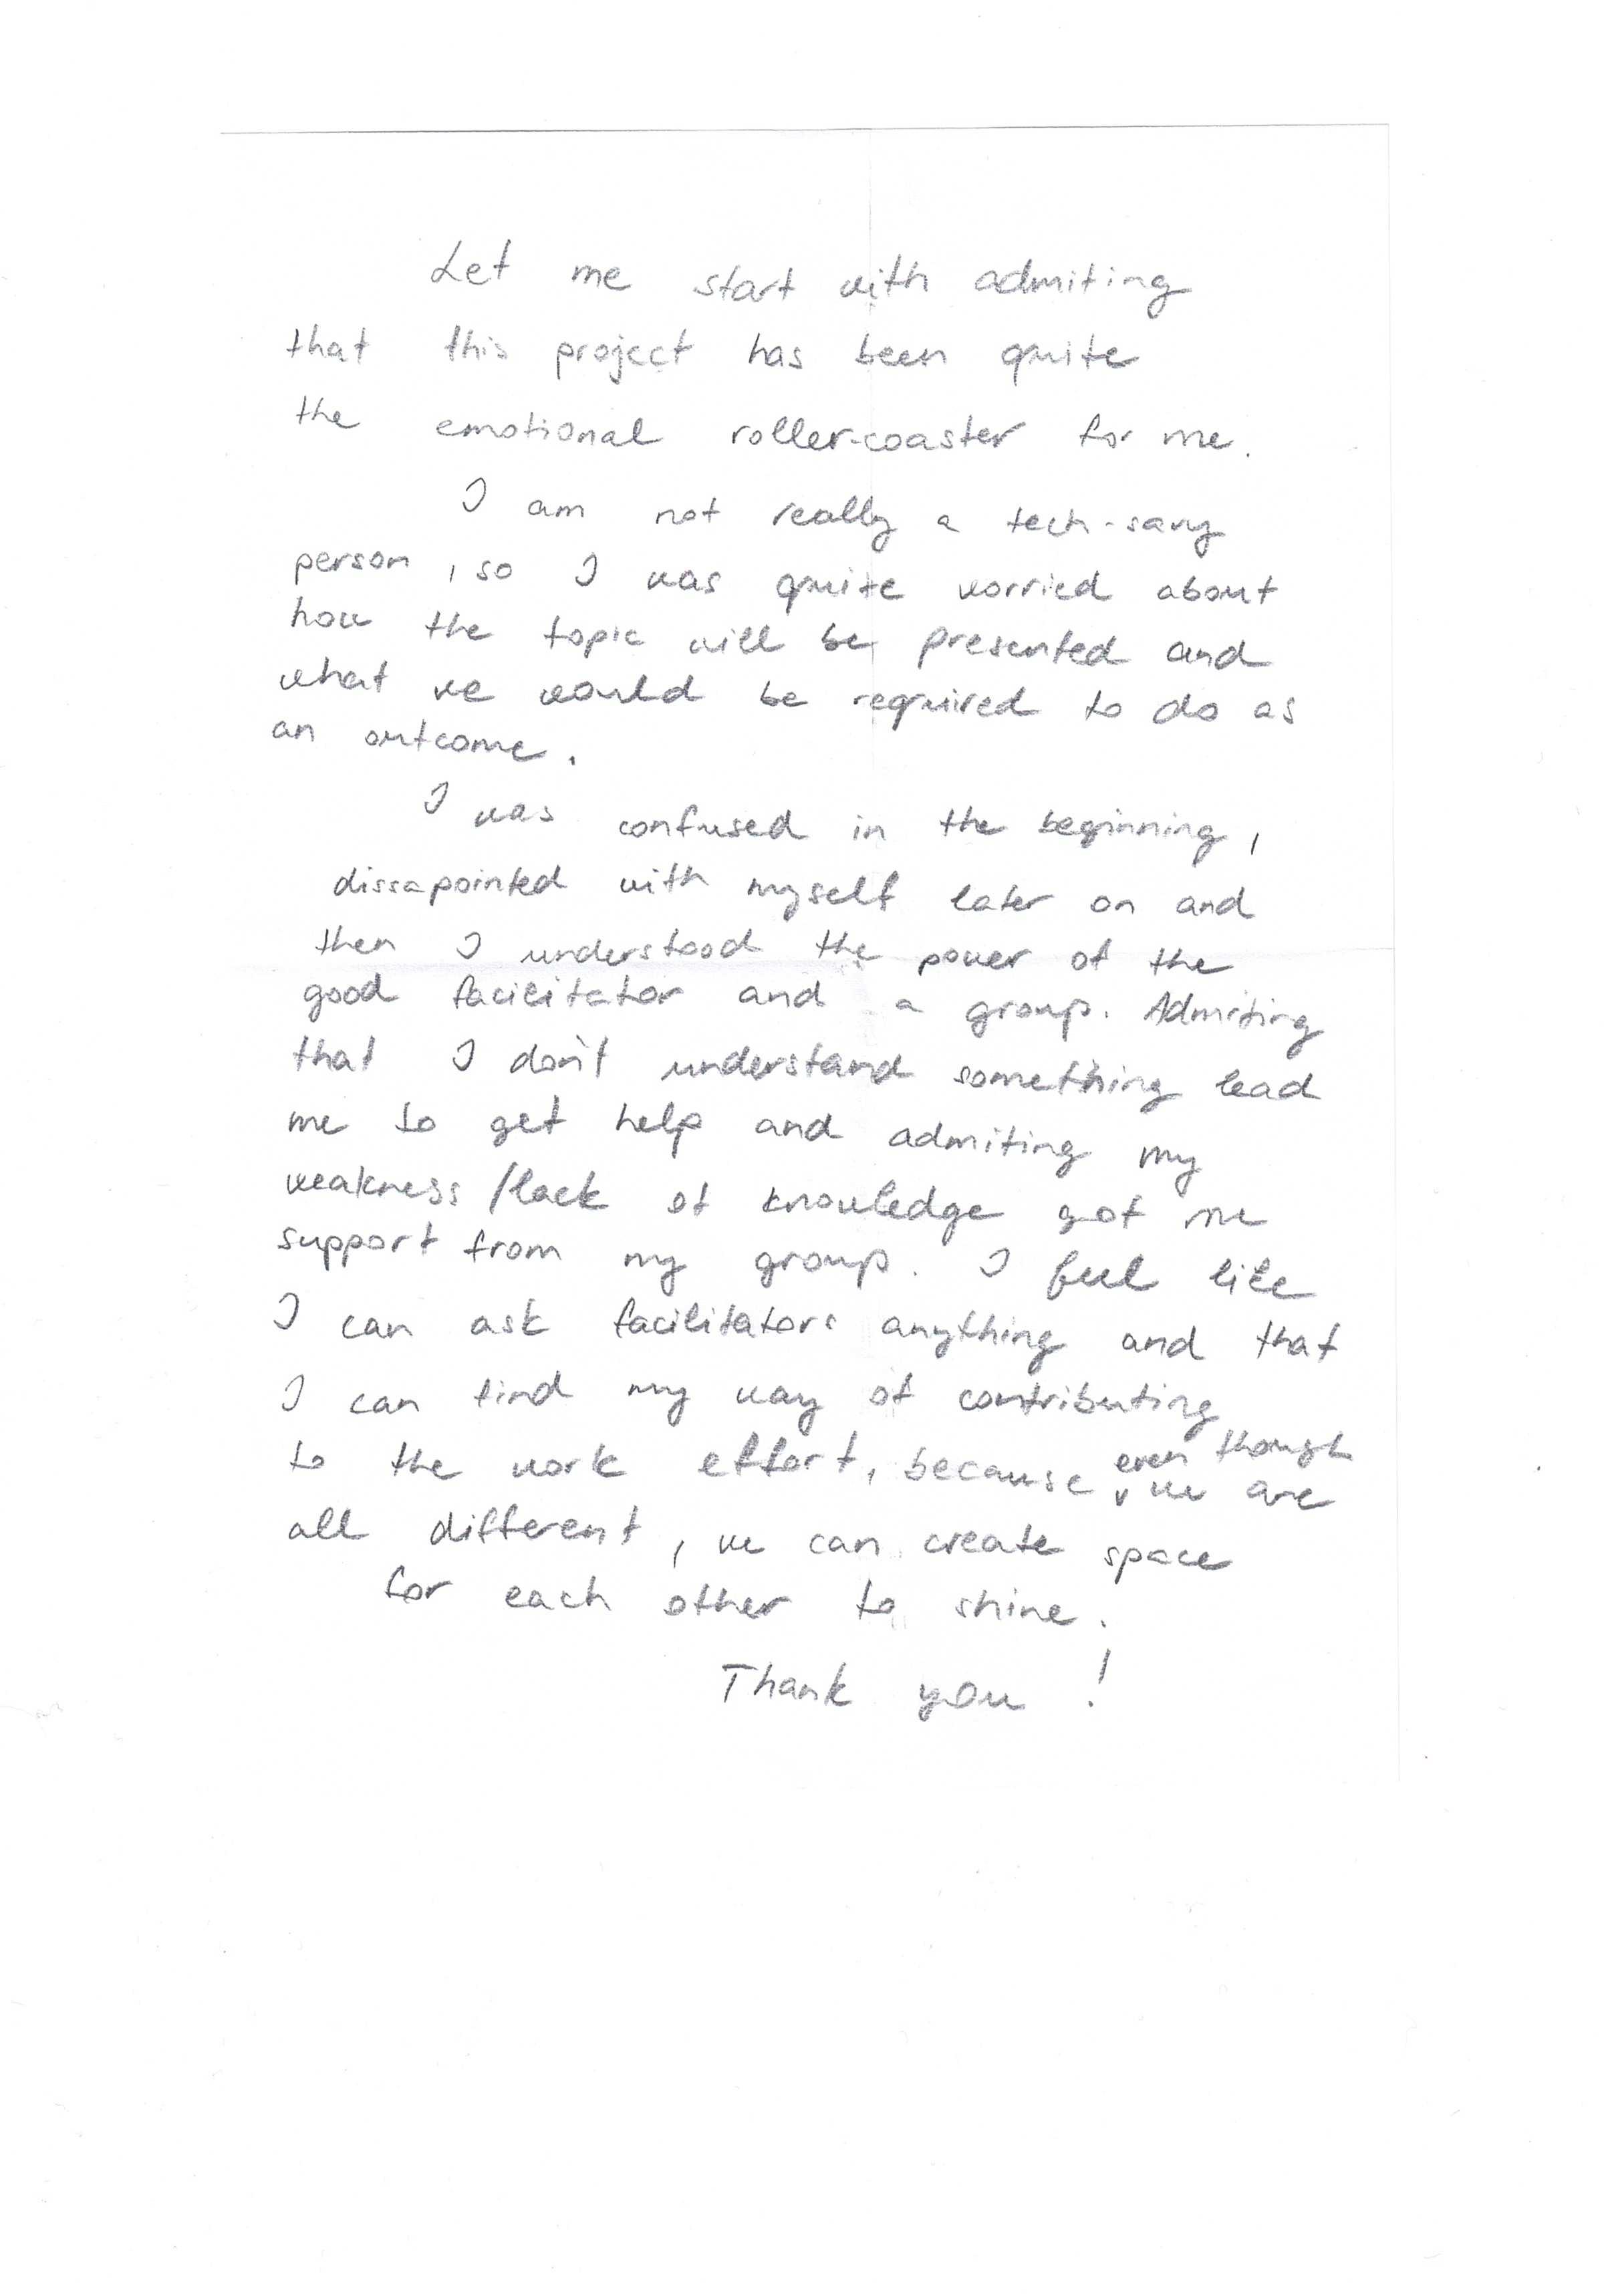 Let me start with admiting
that this project has been quite
the emotional roller-coaster for me.
I am not really a tech-savy
person, so I was quite worried about
how the topic will be presented and
what we would be required to do as
an outcome.
I was confused in the beginning,
dissapointed with myself later on and
then I understood the power of the
good facilitator and a group. Admiting
that I don't understand something lead
me to get help and admiting my
weakness/lack of knowledge got me
support from my group. I feel like
I can ask facilitators anything and that
I can find my way of contributing
to the work effort, because even though we are
all different, we can create space
for each other to shine.
Thank you!